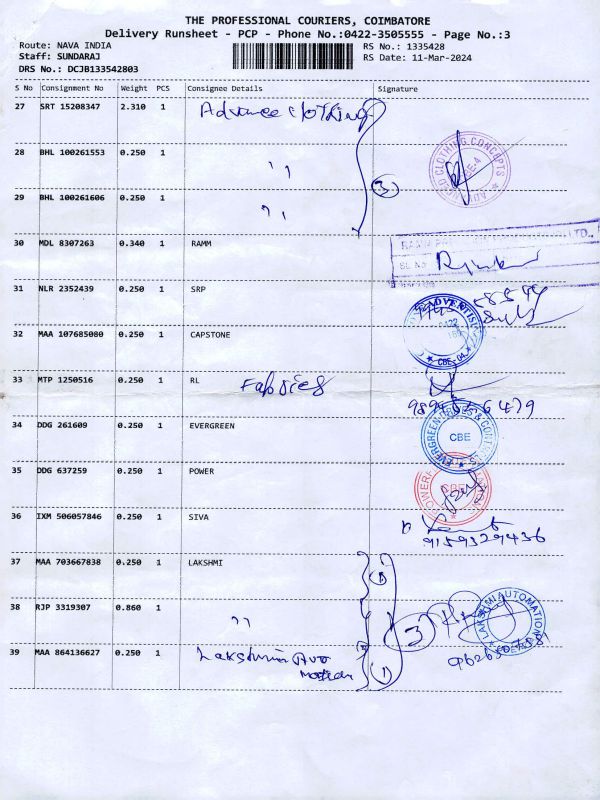 THE PROFESSIONAL COURIERS, COIMBATORE
Delivery Runsheet - PCP - Phone No.:0422-3505555 - Page No.:3
Route: NAVA INDIA RS No.: 1335428
Staff: SUNDARAJ RS Date: 11-Mar-2024
DRS No.: DCJB133542803
S No Consignment No Weight PCS Consignee Details Signature
27 SRT 15208347 2.310 1 Advance clothing
28 BHL 100261553 0.250 1 " CLOTHING CONCEPTS
29 BHL 100261606 0.250 1 " 3
30 MDL 8307263 0.340 1 RAMM
31 NLR 2352439 0.250 1 SRP
ADVERTISI
32 MAA 107685080 0.250 1 CAPSTONE
CBE-04
33 MTP 1250516 0.250 1 RL Fabrics
34 DDG 261609 0.250 1 EVERGREEN EVERGREEN CBE
35 DDG 637259 0.250 1 POWER CBE
36 IXM 506057846 0.250 1 SIVA
9159329436
37 MAA 703667838 0.250 1 LAKSHMI
38 RJP 3319307 0.860 1 " 3 LAKSHMI AUTOMATION
39 MAA 864136627 0.250 1 Lakshmi Auto